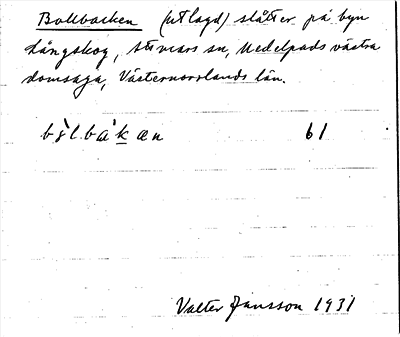 Bollbacken (utlagd) slåtter på byn
Långskog, Stöde sn, Medelpads västra
domsaga, Västernorrlands län.
bɔ̀lbakæn 61
Valter Jansson 1931